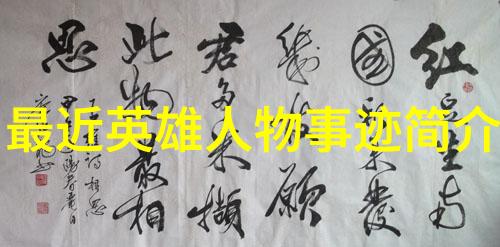 最近英雄人物事迹简介
红豆生南
國春来發
幾枝願
君多采撷
此物最相
思